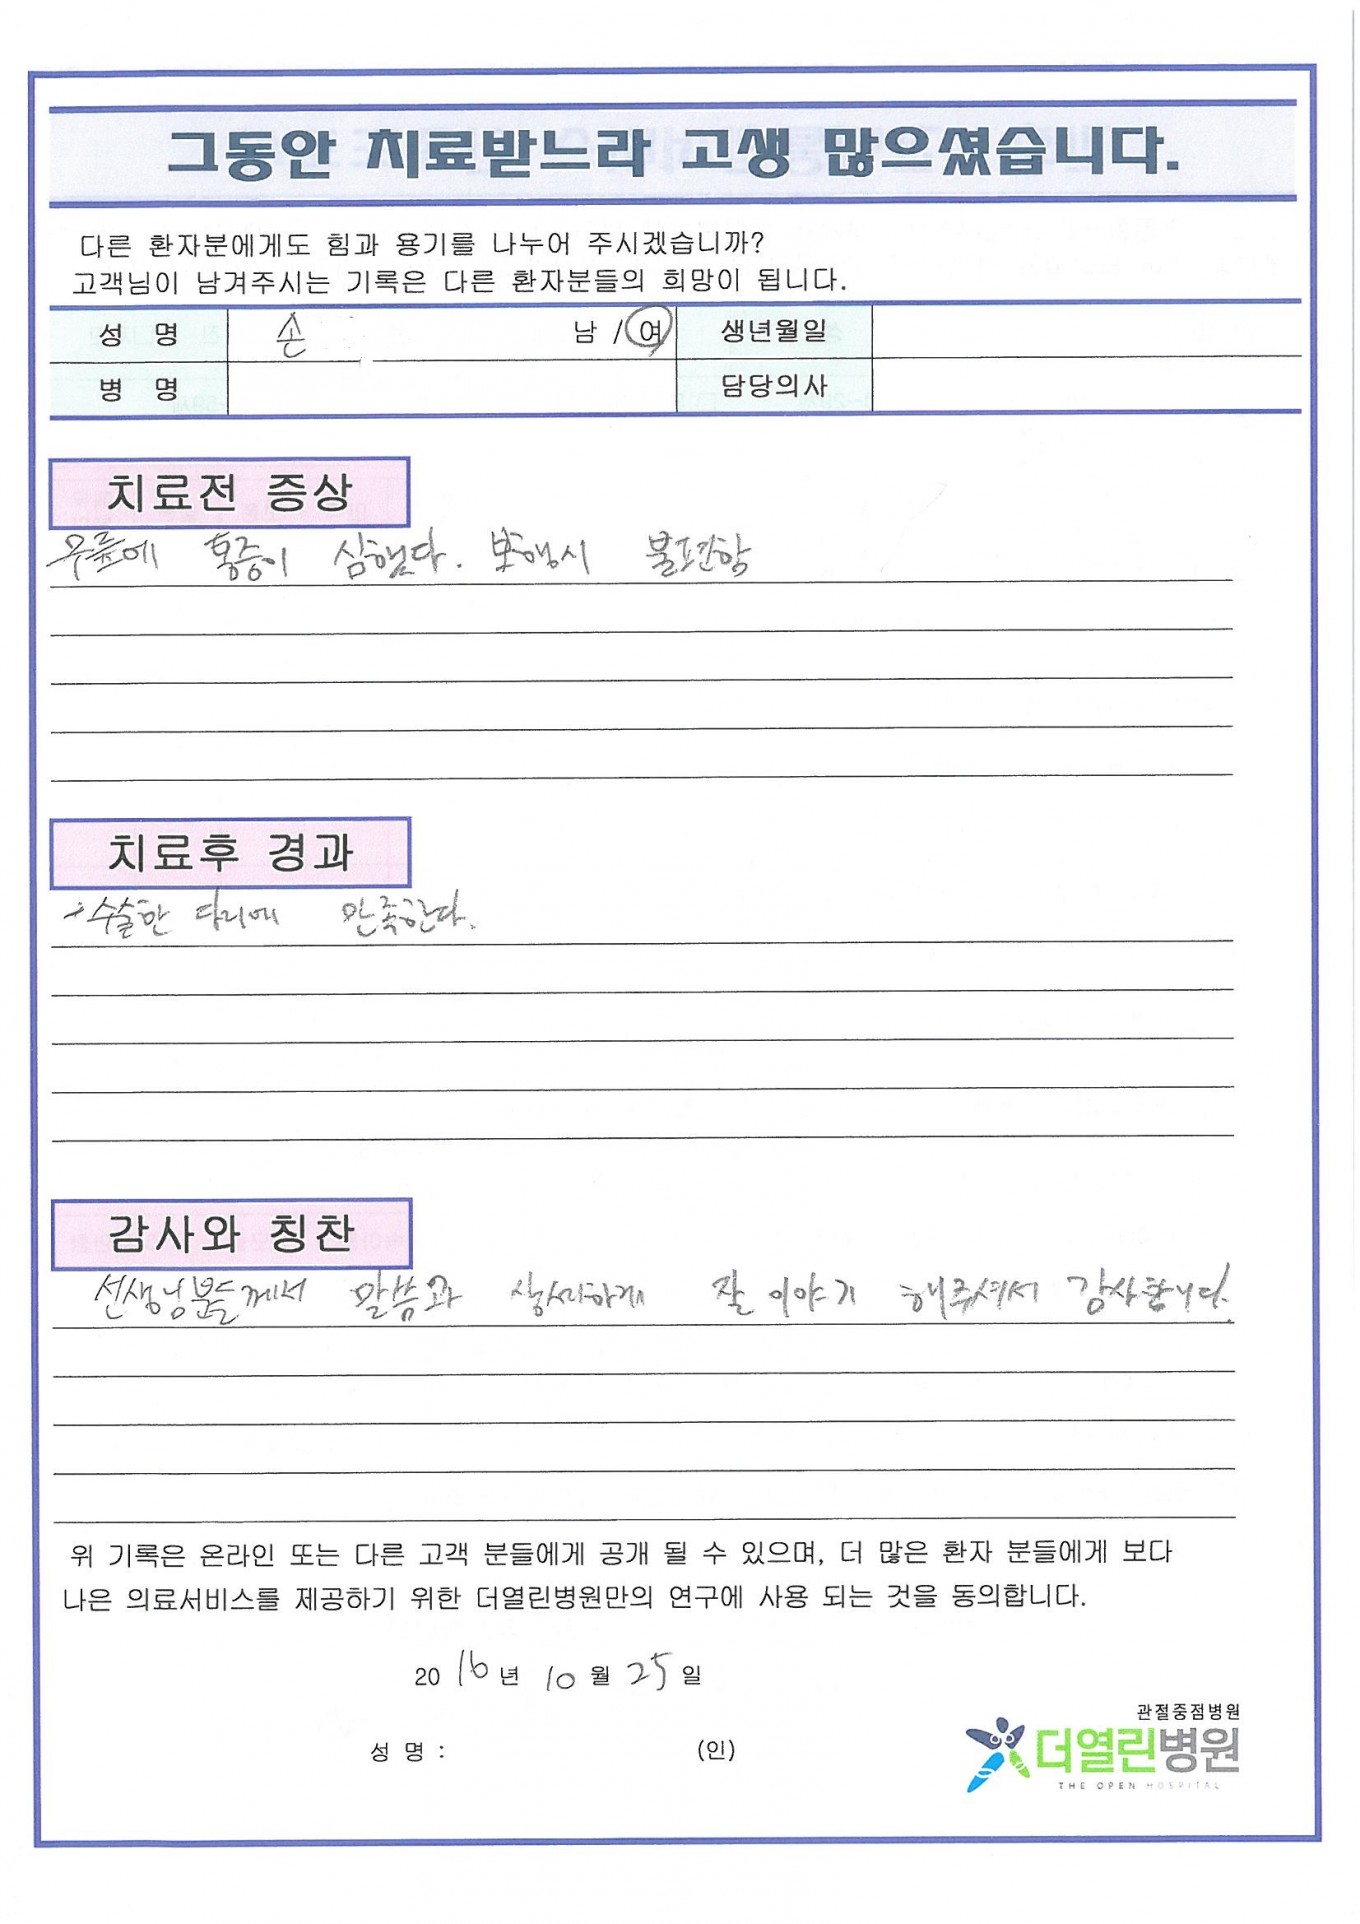 그동안 치료받느라 고생 많으셨습니다.
다른 환자분에게도 힘과 용기를 나누어 주시겠습니까?
고객님이 남겨주시는 기록은 다른 환자분들의 희망이 됩니다.
성 명 손 남 / 여 생년월일
병 명 담당의사
치료전 증상
무릎에 통증이 심했다. 보행시 불편함
치료후 경과
수술한 다리에 만족한다.
감사와 칭찬
선생님분들께서 말씀과 상세하게 잘 이야기 해주셔서 감사합니다.
위 기록은 온라인 또는 다른 고객 분들에게 공개 될 수 있으며, 더 많은 환자 분들에게 보다
나은 의료서비스를 제공하기 위한 더열린병원만의 연구에 사용 되는 것을 동의합니다.
2016년 10월 25일
관절중점병원
성 명 : (인)
더열린병원
THE OPEN HOSPITAL